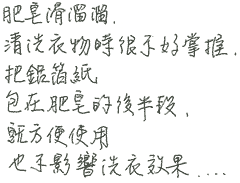 肥皂滑溜溜.
清洗衣物時很不好掌握.
把鋁箔紙
包在肥皂的後半段,
就方便使用
也不影響洗衣效果....